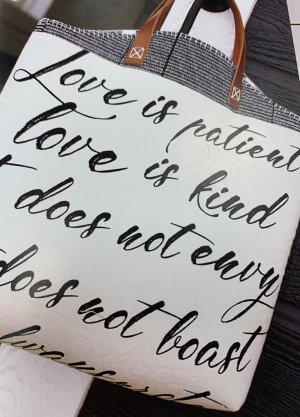 Love is patient
Love is kind
t does not envy
does not boast